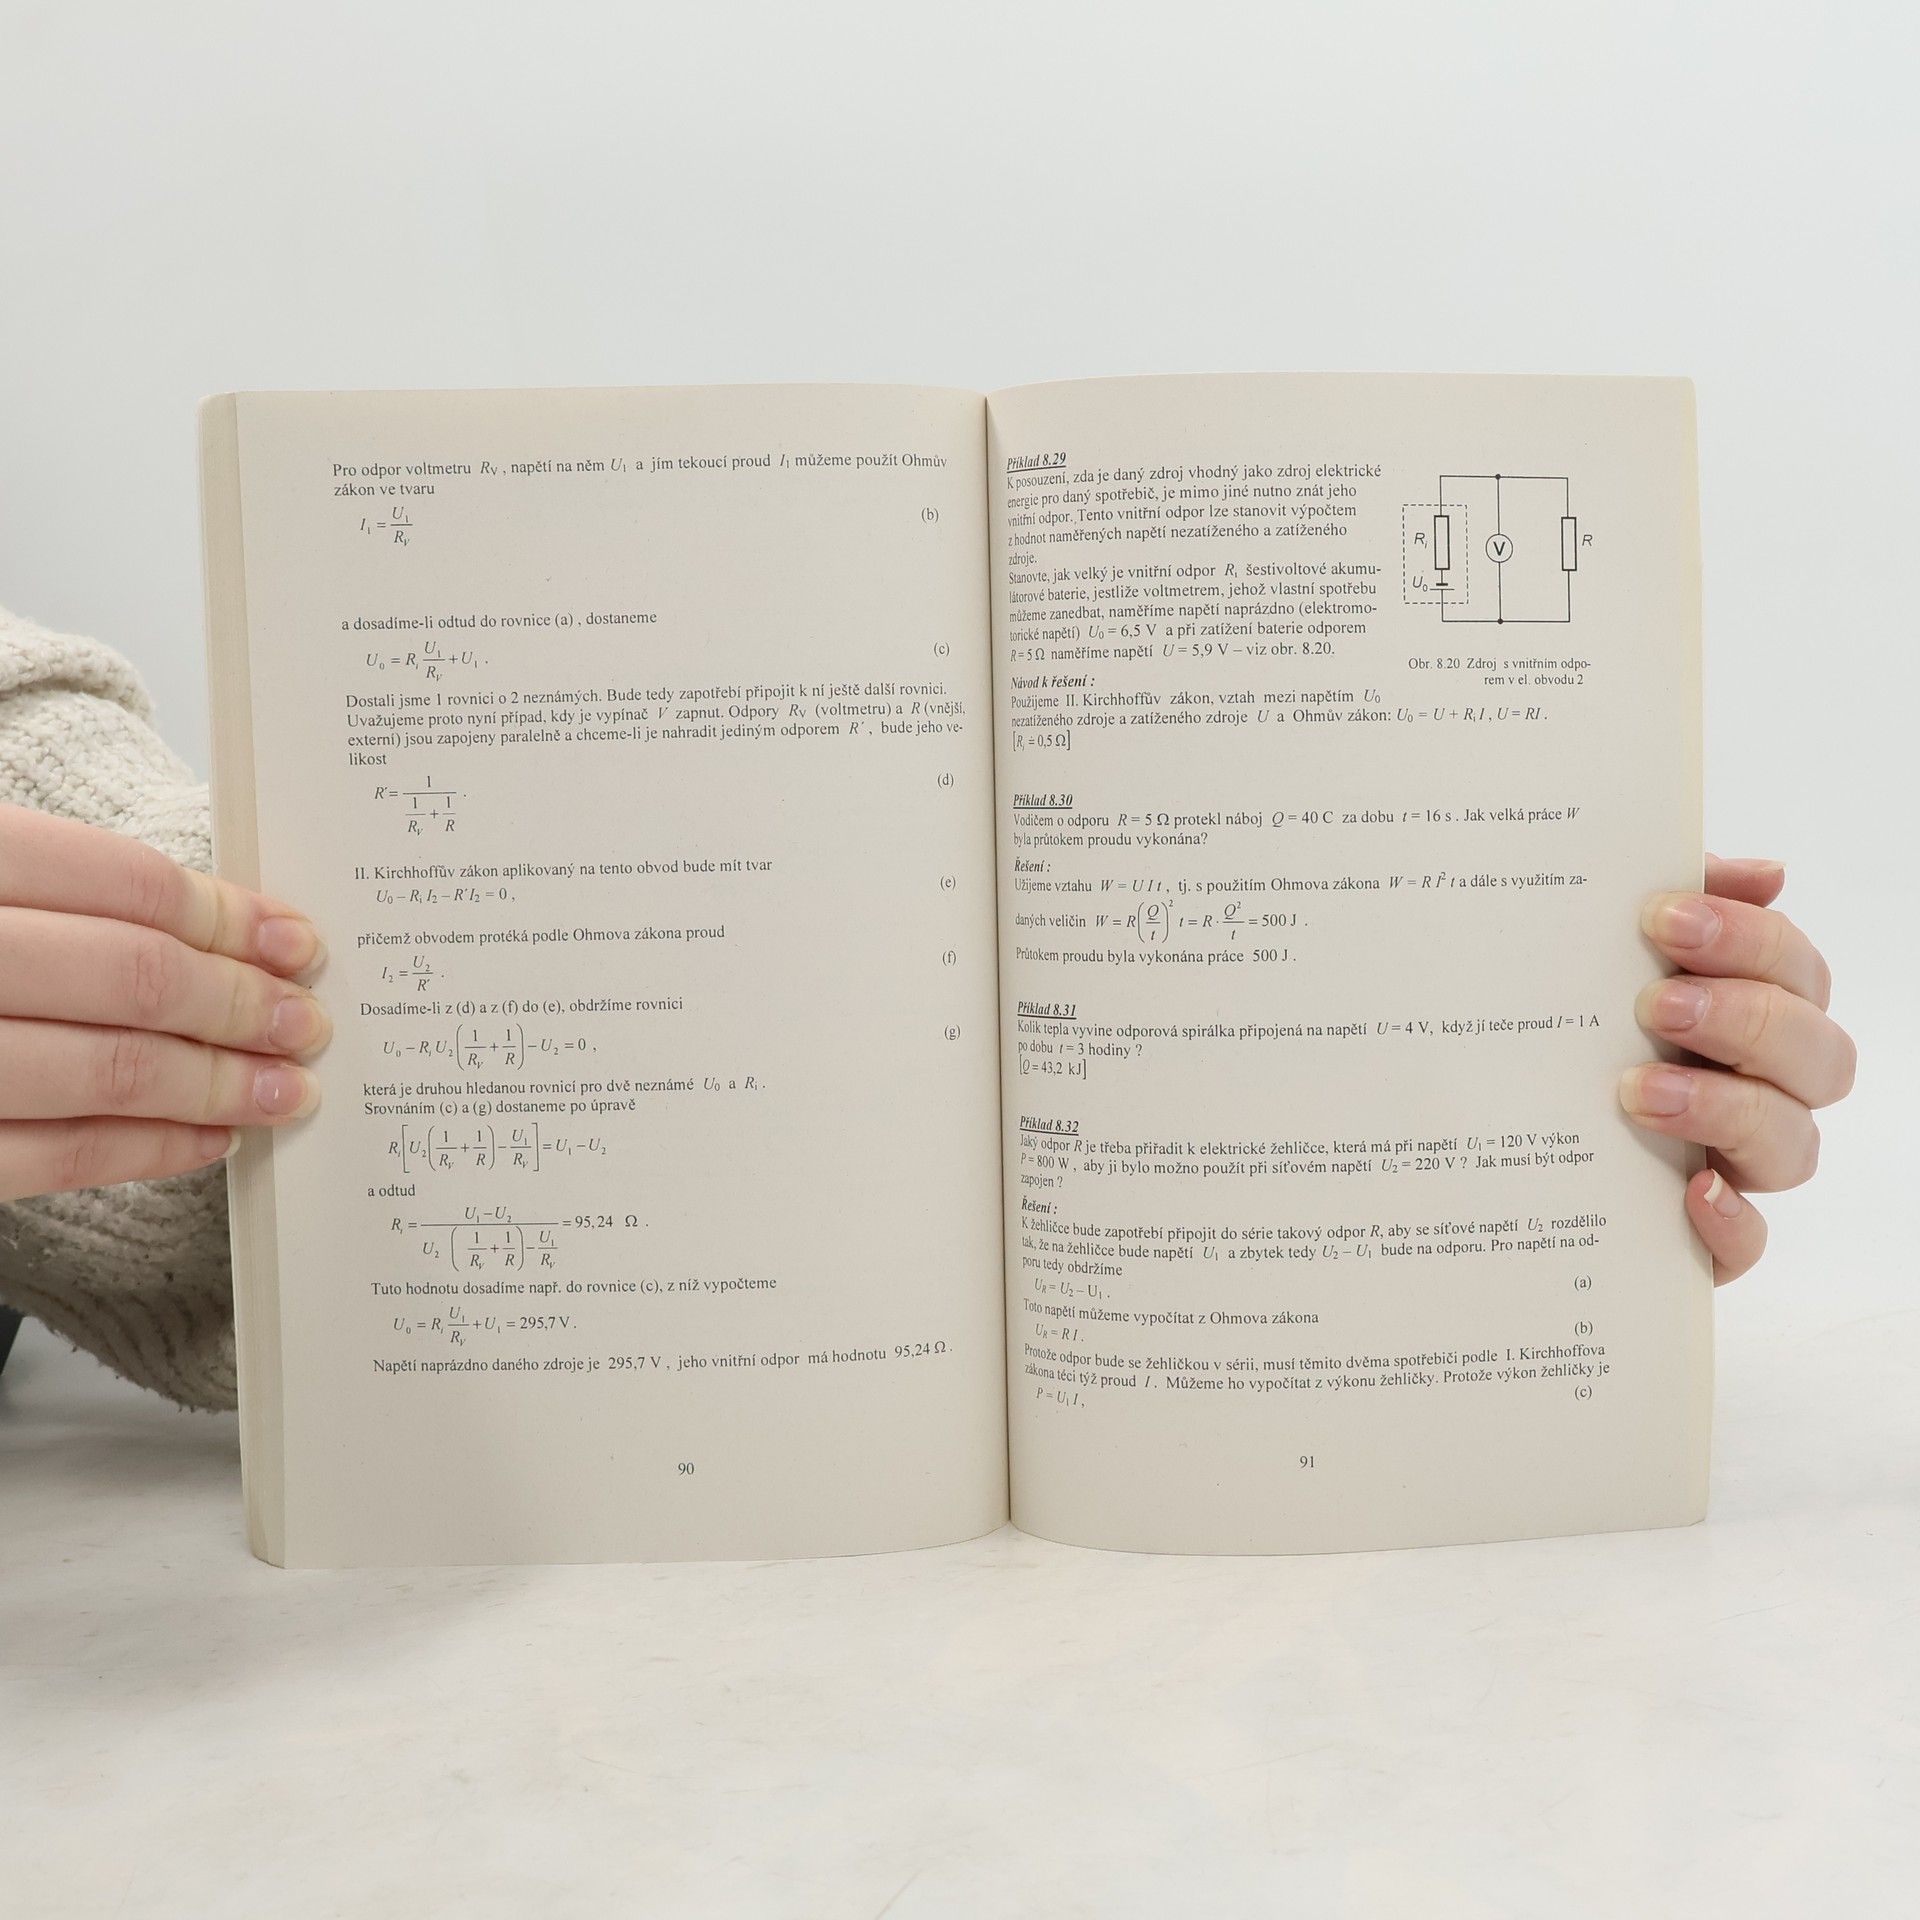 Pro odpor voltmetru R_V , napětí na něm U_1 a jím tekoucí proud I_1 můžeme použít Ohmův
zákon ve tvaru
I_1 = U_1 / R_V (b)
a dosadíme-li odtud do rovnice (a) , dostaneme
U_0 = R_i U_1 / R_V + U_1 . (c)
Dostali jsme 1 rovnici o 2 neznámých. Bude tedy zapotřebí připojit k ní ještě další rovnici.
Uvažujeme proto nyní případ, kdy je vypínač V zapnut. Odpory R_V (voltmetru) a R (vnější,
externí) jsou zapojeny paralelně a chceme-li je nahradit jediným odporem R´ , bude jeho ve-
likost
R´ = 1 / (1/R_V + 1/R) . (d)
II. Kirchhoffův zákon aplikovaný na tento obvod bude mít tvar
U_0 – R_i I_2 – R´I_2 = 0 , (e)
přičemž obvodem protéká podle Ohmova zákona proud
I_2 = U_2 / R´ . (f)
Dosadíme-li z (d) a z (f) do (e), obdržíme rovnici
U_0 – R_i U_2 (1/R_V + 1/R) – U_2 = 0 , (g)
která je druhou hledanou rovnicí pro dvě neznámé U_0 a R_i .
Srovnáním (c) a (g) dostaneme po úpravě
R_i [U_2 (1/R_V + 1/R) – U_1/R_V] = U_1 – U_2
a odtud
R_i = (U_1 – U_2) / (U_2 (1/R_V + 1/R) – U_1/R_V) = 95,24 Ω .
Tuto hodnotu dosadíme např. do rovnice (c), z níž vypočteme
U_0 = R_i U_1 / R_V + U_1 = 295,7 V .
Napětí naprázdno daného zdroje je 295,7 V , jeho vnitřní odpor má hodnotu 95,24 Ω .
90
Příklad 8.29
K posouzení, zda je daný zdroj vhodný jako zdroj elektrické
energie pro daný spotřebič, je mimo jiné nutno znát jeho
vnitřní odpor. Tento vnitřní odpor lze stanovit výpočtem
z hodnot naměřených napětí nezatíženého a zatíženého
zdroje.
Stanovte, jak velký je vnitřní odpor R_i šestivoltové akumu-
látorové baterie, jestliže voltmetrem, jehož vlastní spotřebu
můžeme zanedbat, naměříme napětí naprázdno (elektromo-
torické napětí) U_0 = 6,5 V a při zatížení baterie odporem
R = 5 Ω naměříme napětí U = 5,9 V – viz obr. 8.20.
R_i
U_0
V
R
Obr. 8.20 Zdroj s vnitřním odpo-
rem v el. obvodu 2
Návod k řešení :
Použijeme II. Kirchhoffův zákon, vztah mezi napětím U_0
nezatíženého zdroje a zatíženého zdroje U a Ohmův zákon: U_0 = U + R_i I , U = RI .
[R_i ≐ 0,5 Ω]
Příklad 8.30
Vodičem o odporu R = 5 Ω protekl náboj Q = 40 C za dobu t = 16 s . Jak velká práce W
byla průtokem proudu vykonána?
Řešení :
Užijeme vztahu W = U I t , tj. s použitím Ohmova zákona W = R I² t a dále s využitím za-
daných veličin W = R (Q/t)² t = R · Q²/t = 500 J .
Průtokem proudu byla vykonána práce 500 J .
Příklad 8.31
Kolik tepla vyvine odporová spirálka připojená na napětí U = 4 V, když jí teče proud I = 1 A
po dobu t = 3 hodiny ?
[Q = 43,2 kJ]
Příklad 8.32
Jaký odpor R je třeba přiřadit k elektrické žehličce, která má při napětí U_1 = 120 V výkon
P = 800 W , aby ji bylo možno použít při síťovém napětí U_2 = 220 V ? Jak musí být odpor
zapojen ?
Řešení :
K žehličce bude zapotřebí připojit do série takový odpor R, aby se síťové napětí U_2 rozdělilo
tak, že na žehličce bude napětí U_1 a zbytek tedy U_2 – U_1 bude na odporu. Pro napětí na od-
poru tedy obdržíme
U_R = U_2 – U_1 . (a)
Toto napětí můžeme vypočítat z Ohmova zákona
U_R = R I . (b)
Protože odpor bude se žehličkou v sérii, musí těmito dvěma spotřebiči podle I. Kirchhoffova
zákona téci týž proud I . Můžeme ho vypočítat z výkonu žehličky. Protože výkon žehličky je
P = U_1 I , (c)
91